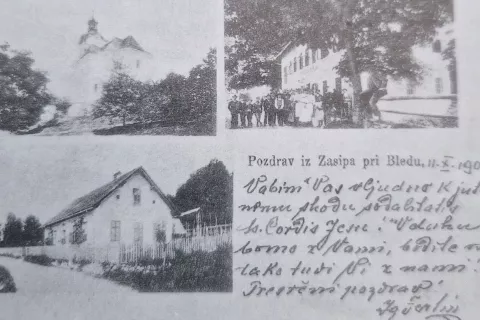 Pozdrav iz Zasipa pri Bledu, 11. X. 190
Vabim Vas vljudno k jut
nemu shodu sodalitatis
s. Cordis Jesu! V duhu
bomo z Vami, bodite
tako tudi Vi z nami!
Presrčni pozdrav!